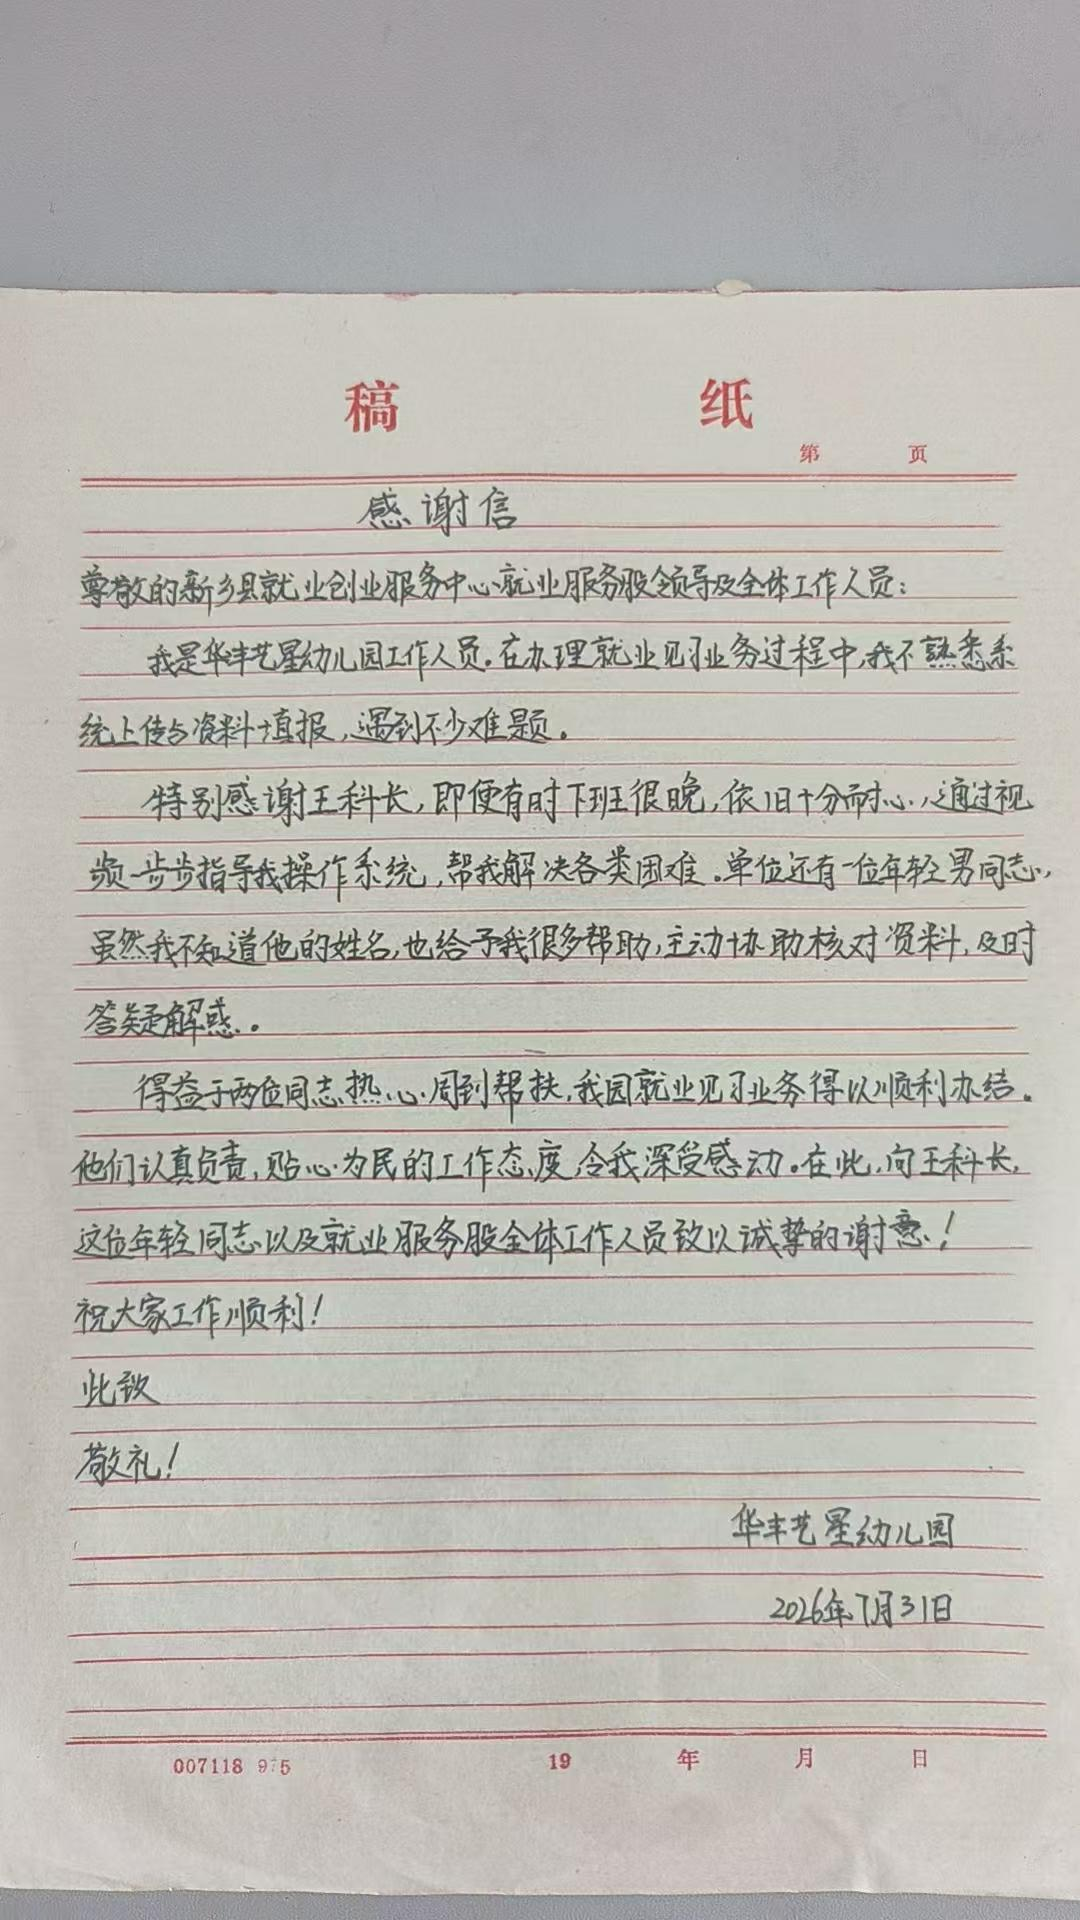 稿 纸
第 页
感谢信
尊敬的新乡县就业创业服务中心就业服务股领导及全体工作人员：
我是华丰艺星幼儿园工作人员。在办理就业见习业务过程中，我不熟悉系
统上传与资料填报，遇到不少难题。
特别感谢王科长，即便有时下班很晚，依旧十分耐心，通过视
频一步步指导我操作系统，帮我解决各类困难。单位还有一位年轻男同志，
虽然我不知道他的姓名，也给予我很多帮助，主动协助核对资料，及时
答疑解惑。
得益于两位同志热心周到帮扶，我园就业见习业务得以顺利办结。
他们认真负责，贴心为民的工作态度，令我深受感动。在此，向王科长，
这位年轻同志以及就业服务股全体工作人员致以诚挚的谢意！
祝大家工作顺利！
此致
敬礼！
华丰艺星幼儿园
2026年7月31日
007118 975 19 年 月 日